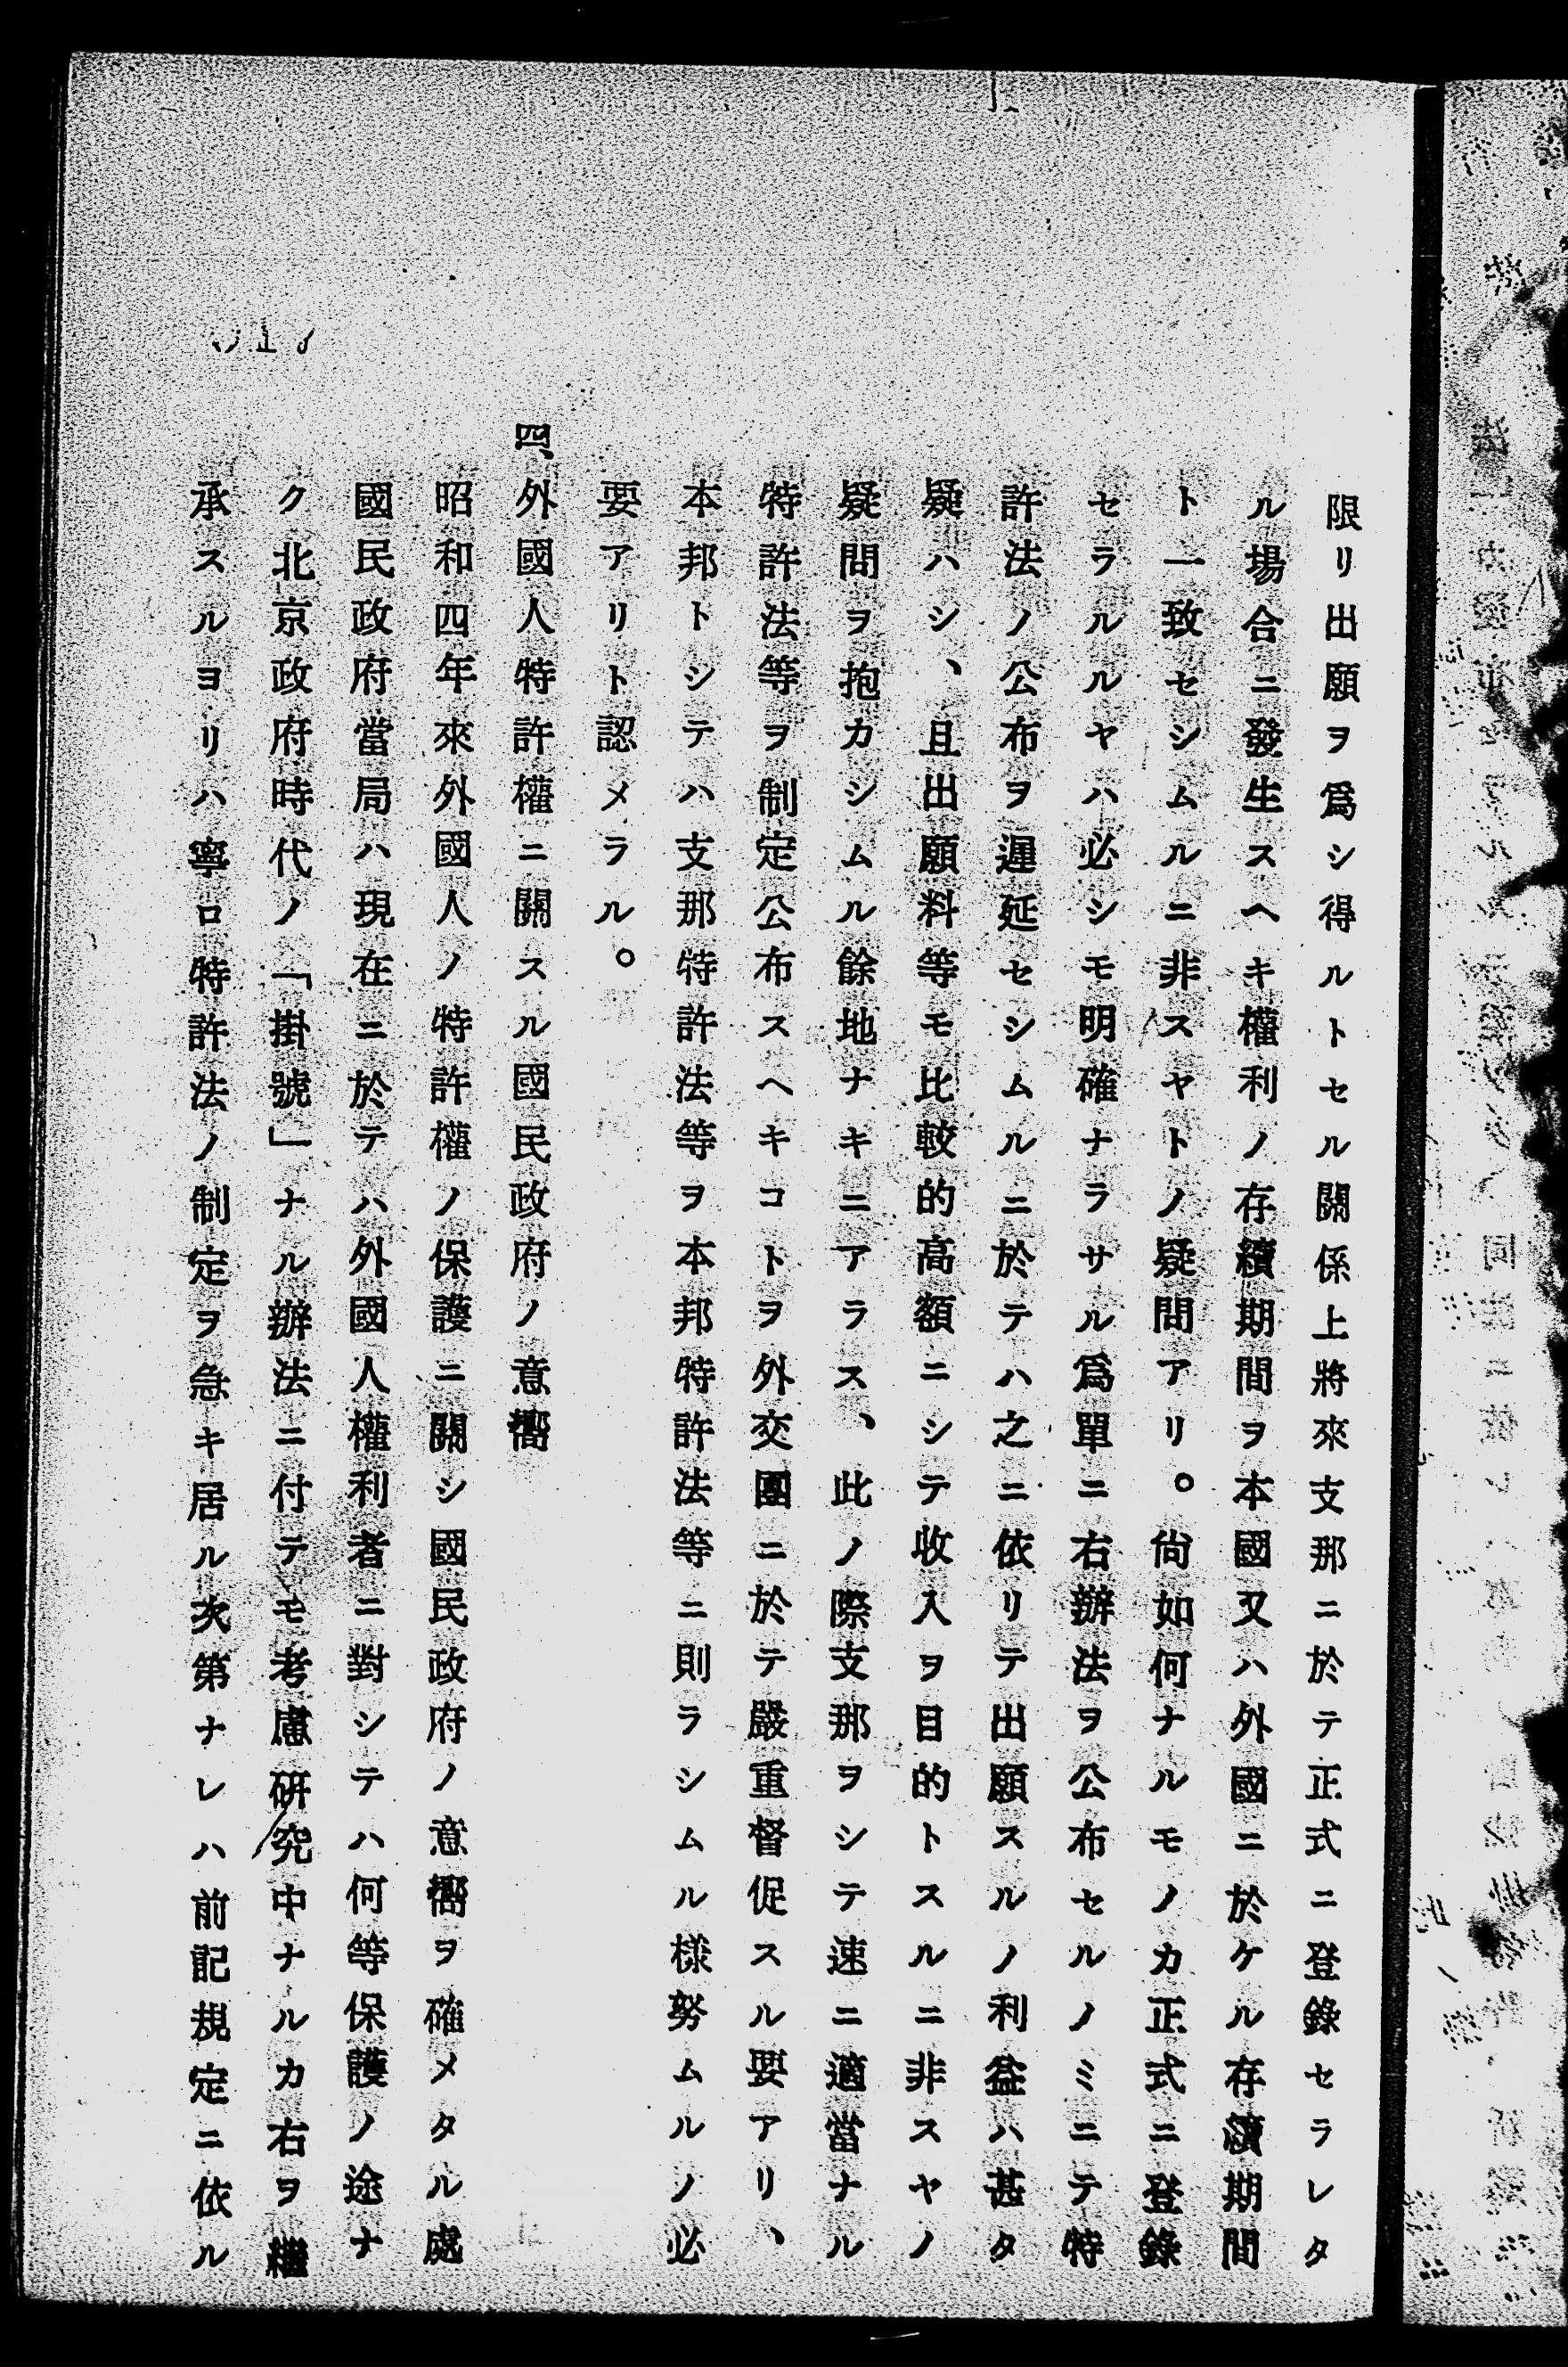 限リ出願ヲ爲シ得ルトセル關係上將來支那ニ於テ正式ニ登錄セラレタ
ル場合ニ發生スヘキ權利ノ存續期間ヲ本國又ハ外國ニ於ケル存續期間
ト一致セシムルニ非スヤトノ疑問アリ。尙如何ナルモノカ正式ニ登錄
セラルルヤハ必シモ明確ナラサル爲單ニ右辦法ヲ公布セルノミニテ特
許法ノ公布ヲ遲延セシムルニ於テハ之ニ依リテ出願スルノ利益ハ甚タ
疑ハシ、且出願料等モ比較的高額ニシテ收入ヲ目的トスルニ非スヤノ
疑問ヲ抱カシムル餘地ナキニアラス、此ノ際支那ヲシテ速ニ適當ナル
特許法等ヲ制定公布スヘキコトヲ外交團ニ於テ嚴重督促スル要アリ、
本邦トシテハ支那特許法等ヲ本邦特許法等ニ則ラシムル樣努ムルノ必
要アリト認メラル。
四、外國人特許權ニ關スル國民政府ノ意嚮
昭和四年來外國人ノ特許權ノ保護ニ關シ國民政府ノ意嚮ヲ確メタル處
國民政府當局ハ現在ニ於テハ外國人權利者ニ對シテハ何等保護ノ途ナ
ク北京政府時代ノ「掛號」ナル辦法ニ付テモ考慮硏究中ナルカ右ヲ繼
承スルヨリハ寧ロ特許法ノ制定ヲ急キ居ル次第ナレハ前記規定ニ依ル